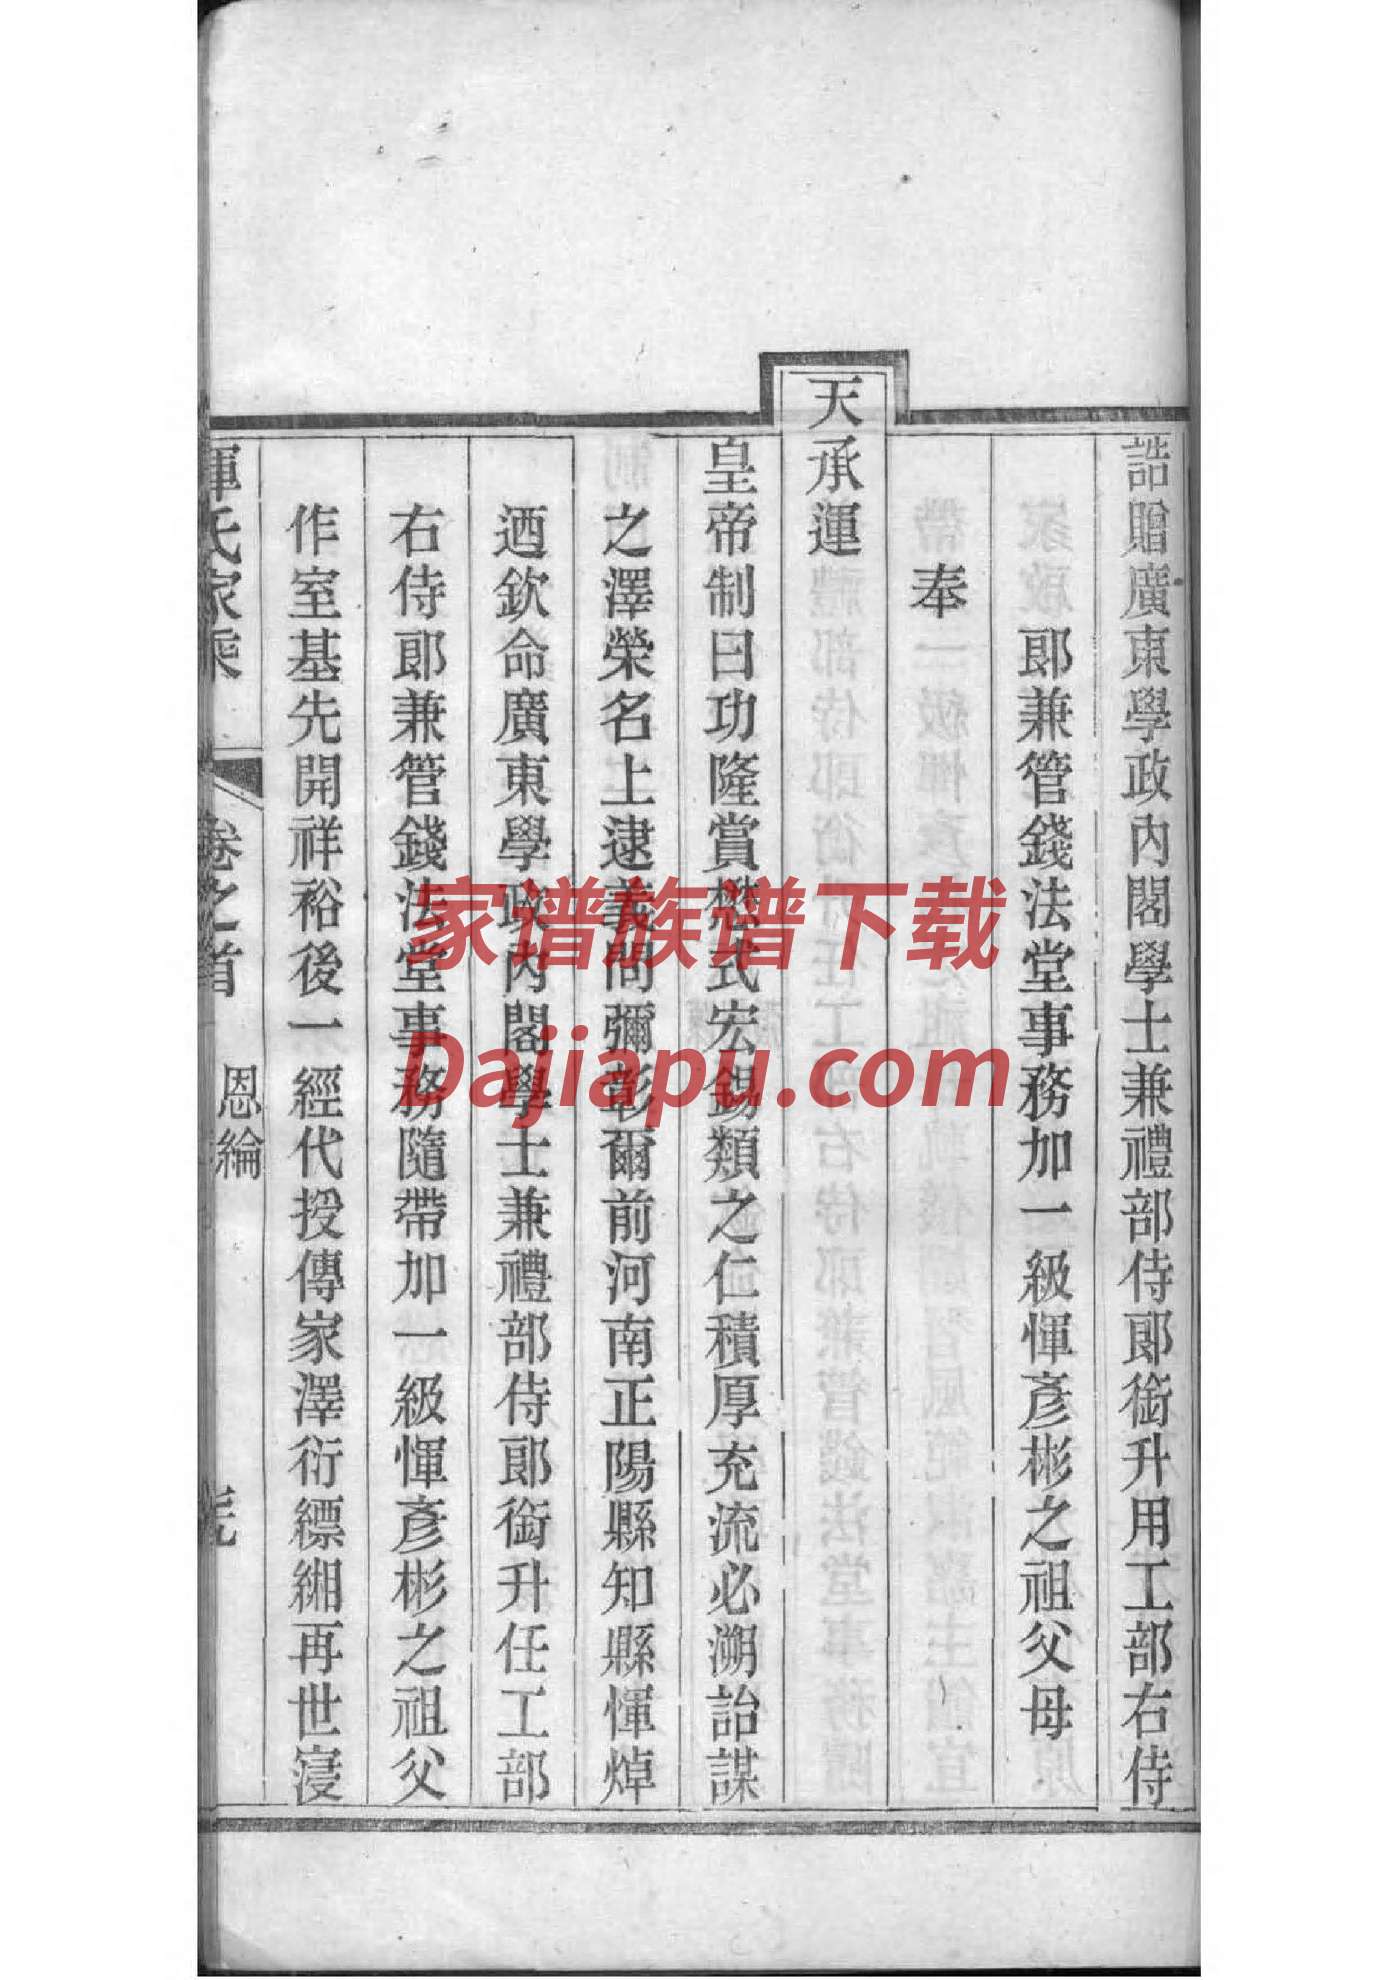 誥贈廣東學政內閣學士兼禮部侍郎銜升用工部右侍
郎兼管錢法堂事務加一級惲彥彬之祖父母
奉
天承運
皇帝制曰功隆賞懋式宏錫類之仁積厚充流必溯詒謀
之澤榮名上逮義問彌彰爾前河南正陽縣知縣惲焯
迺欽命廣東學政內閣學士兼禮部侍郎銜升任工部
右侍郎兼管錢法堂事務隨帶加一級惲彥彬之祖父
作室基先開祥裕後一經代授傳家澤衍縹緗再世寖
惲氏家乘 卷之首 恩綸
家谱族谱下载
Dajiapu.com